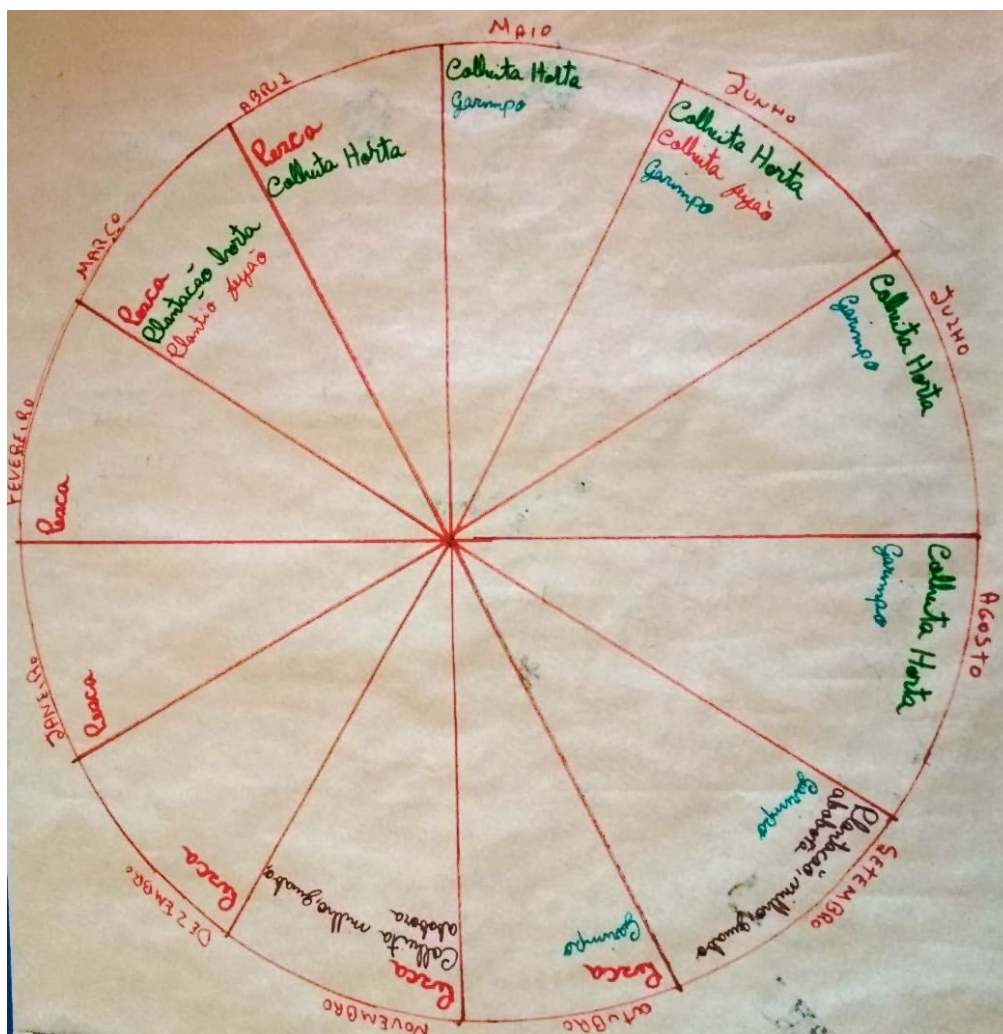 MAIO
Colheita Horta
Garimpo
JUNHO
Colheita Horta
Colheita feijão
Garimpo
JULHO
Colheita Horta
Garimpo
AGOSTO
Colheita Horta
Garimpo
SETEMBRO
Plantação, milho, quiabo
abobora
Garimpo
OUTUBRO
Pesca
Garimpo
NOVEMBRO
Pesca
Colheita milho, quiabo,
abobora
DEZEMBRO
Pesca
JANEIRO
Pesca
FEVEREIRO
Pesca
MARÇO
Pesca
Plantação horta
Plantio feijão
ABRIL
Pesca
Colheita Horta